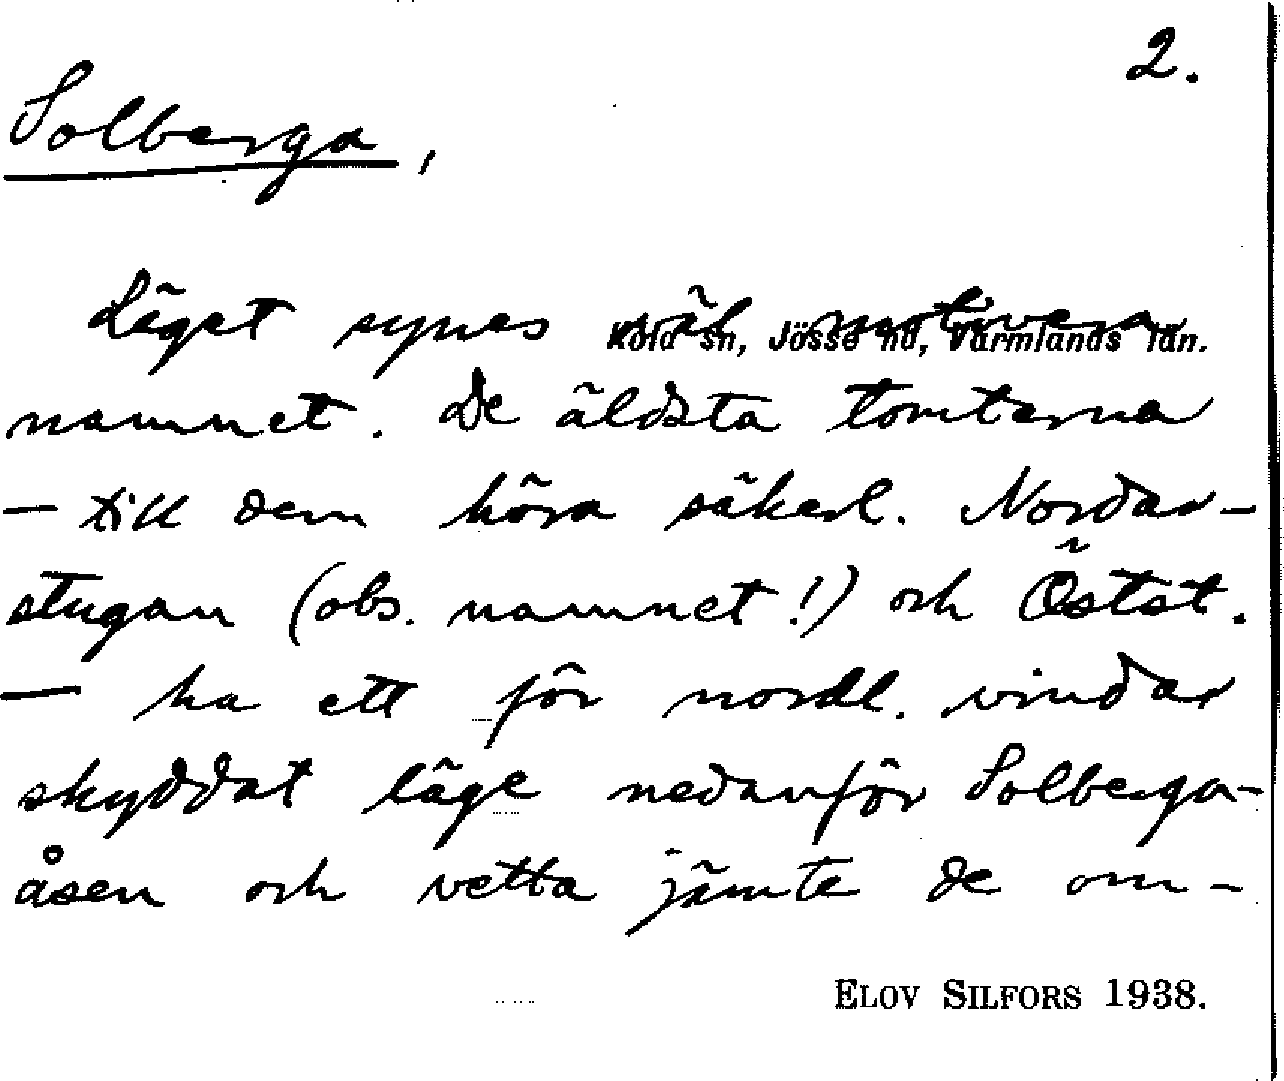 2.
Solberga,
Läget synes väl motivera
Köla sn, Jösse hd, Värmlands län.
namnet. De äldsta tomterna
– till dem höra säkerl. Nordar-
stugan (obs. namnet!) och Östst.
– ha ett för nordl. vindar
skyddat läge nedanför Solberga-
åsen och vetta jämte de om-
ELOV SILFORS 1938.